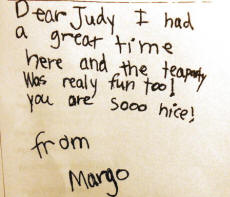 Dear Judy I had
a great time
here and the teaparty
Was realy fun too!
you are sooo nice!
from
Margo